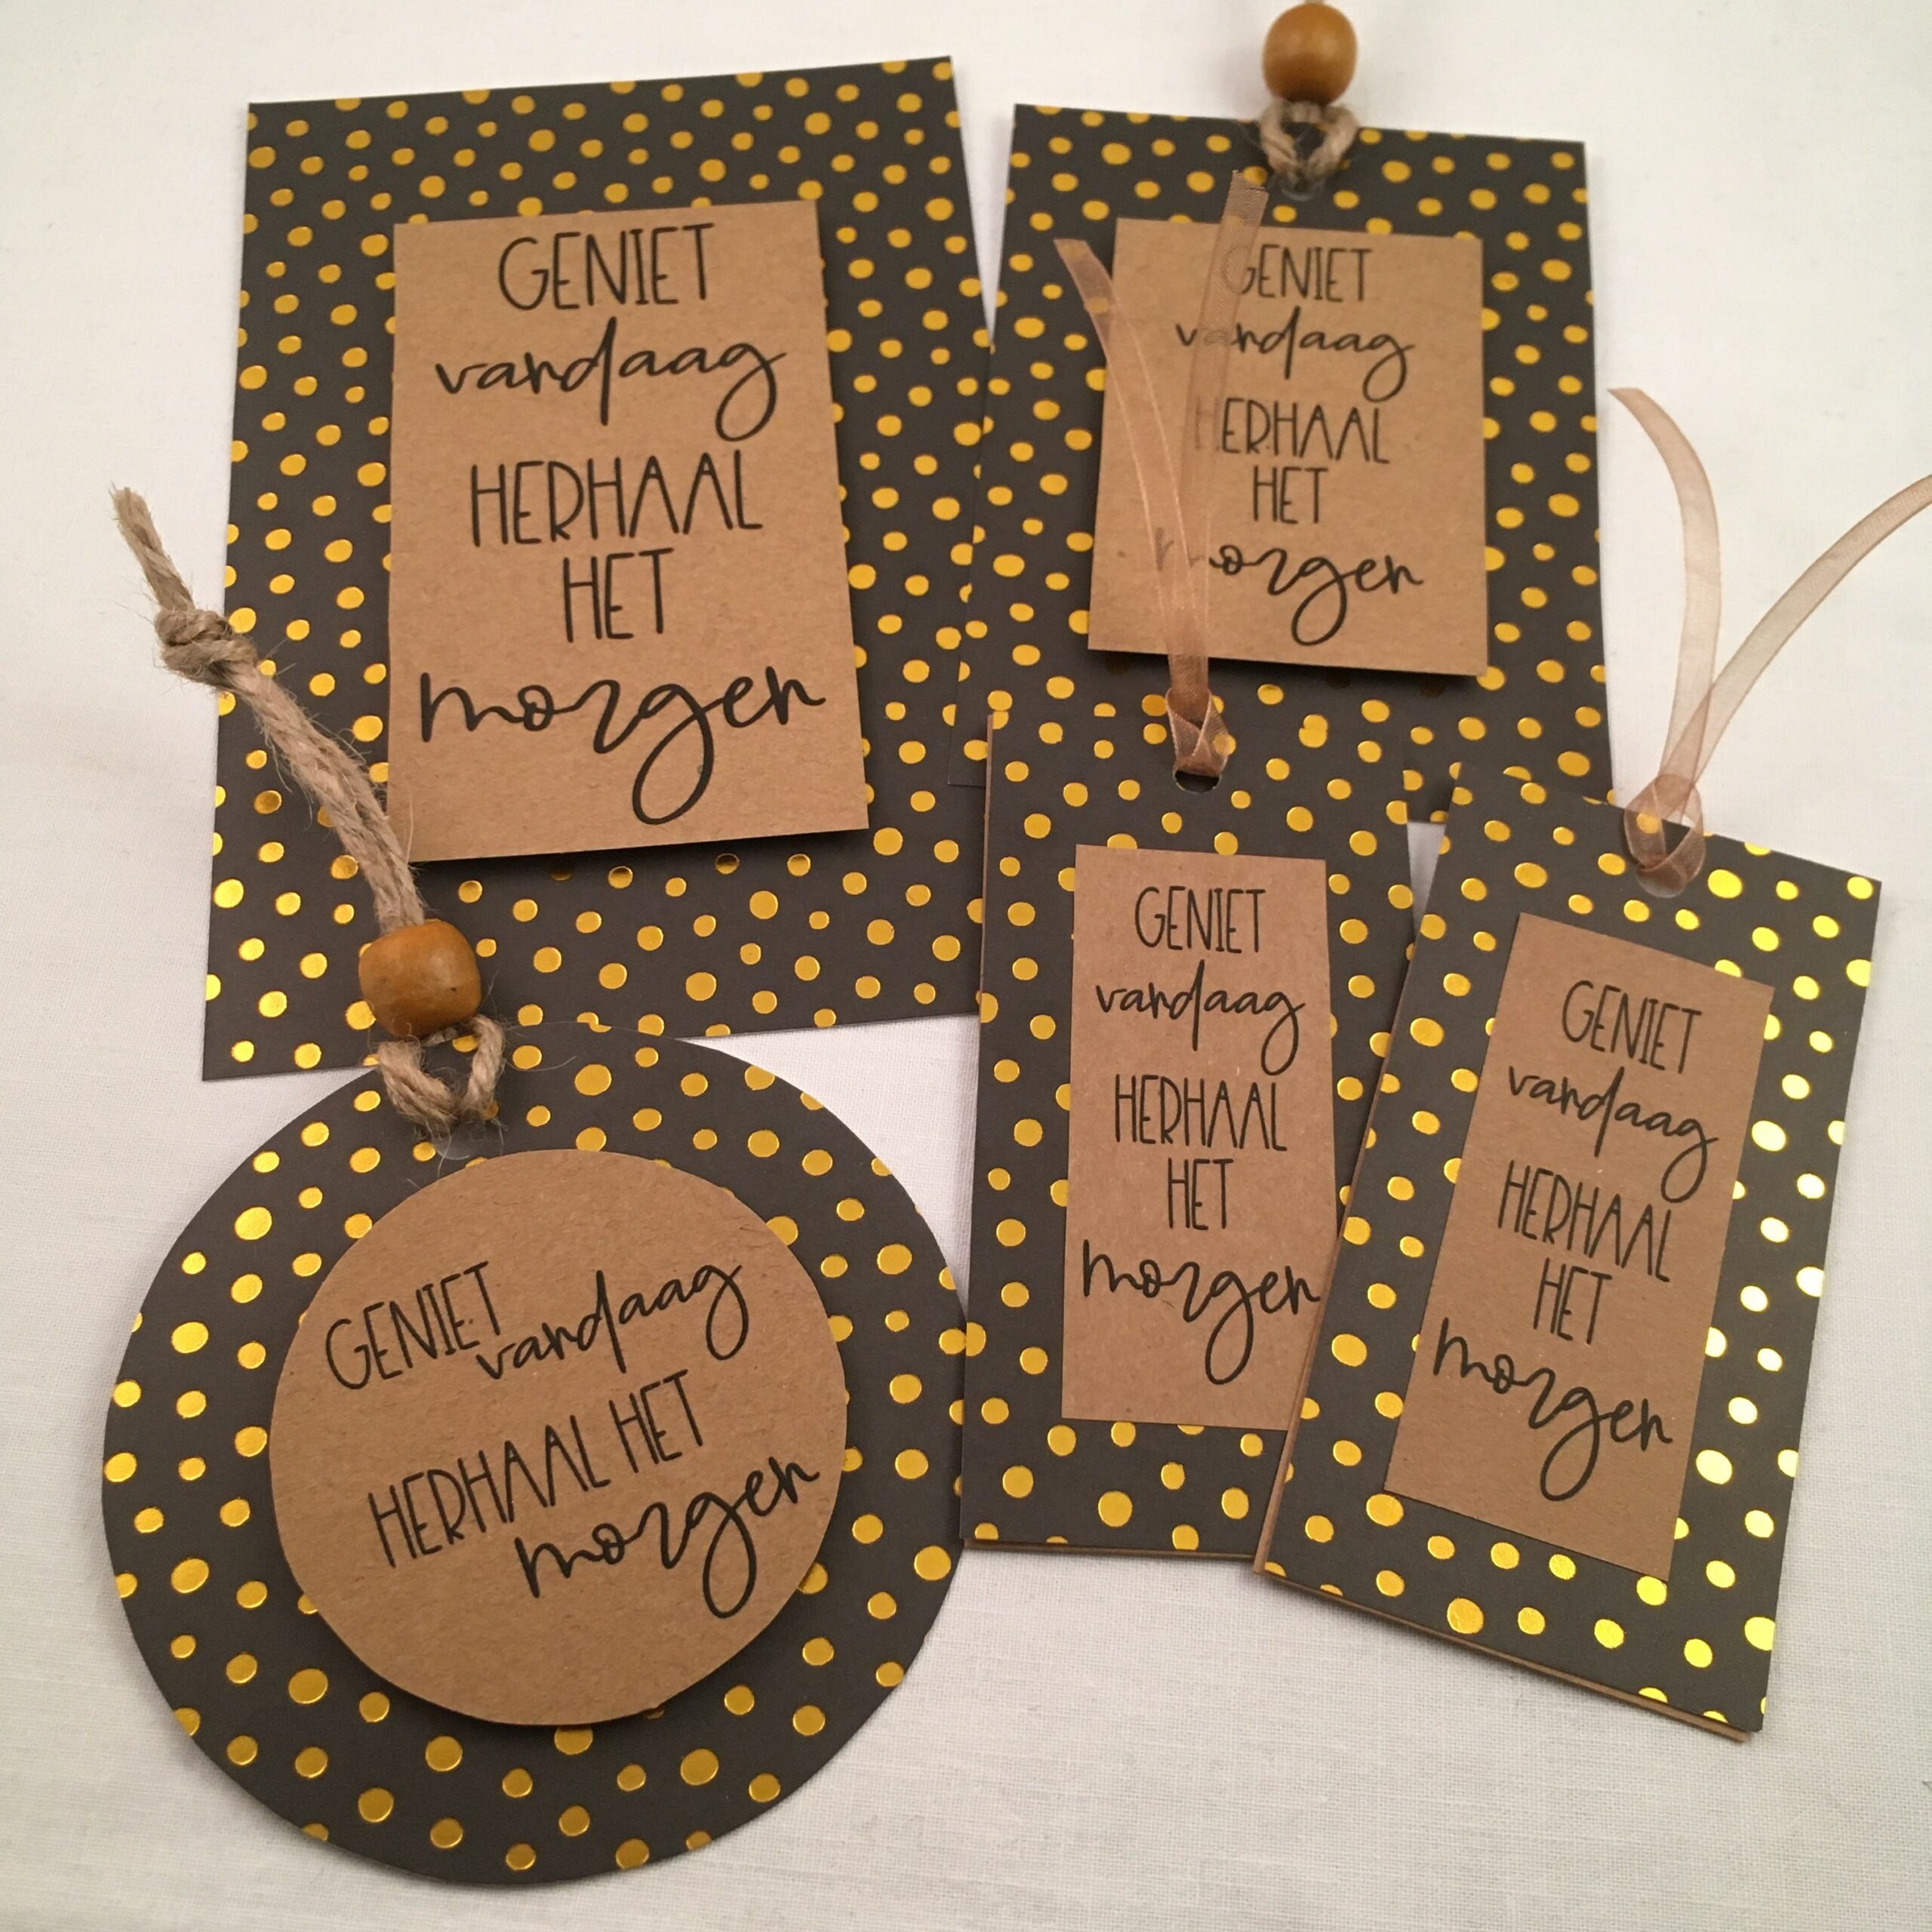 GENIET
vandaag
HERHAAL
HET
morgen
GENIET
vandaag
HERHAAL
HET
morgen
GENIET
vandaag
HERHAAL
HET
morgen
GENIET
vandaag
HERHAAL
HET
morgen
GENIET vandaag
HERHAAL HET
morgen